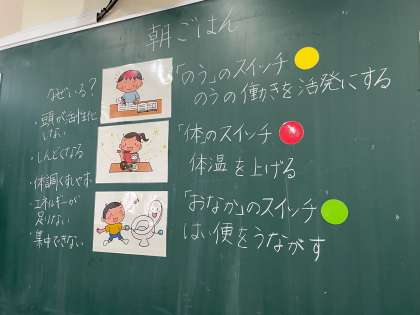 朝ごはん
なぜいる?
・頭が活性化
しない
・しんどくなる
・体調くずしやす
・エネルギーが
足りない
・集中できない
「のう」のスイッチ
のうの働きを活発にする
「体」のスイッチ
体温を上げる
「おなか」のスイッチ
はい便をうながす